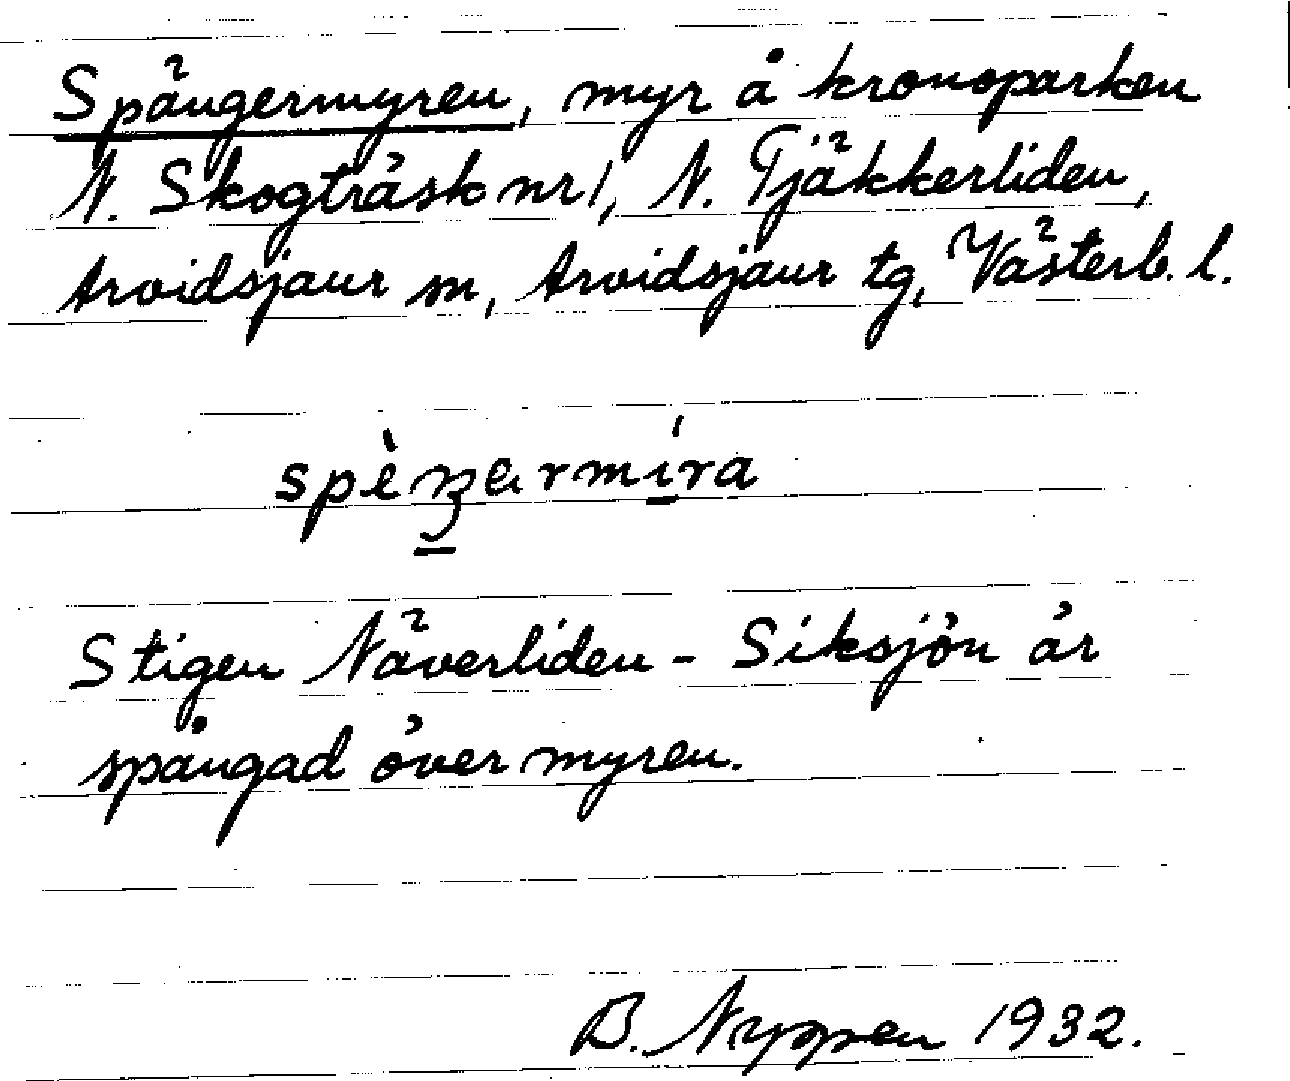 Spängermyren, myr å kronoparken
N. Skogträsk nr 1, N. Tjäkkerliden,
Arvidsjaur sn, Arvidsjaur tg, Västerb. l.
Stigen Näverliden - Siksjön är
spångad över myren.
B. Nyppen 1932.